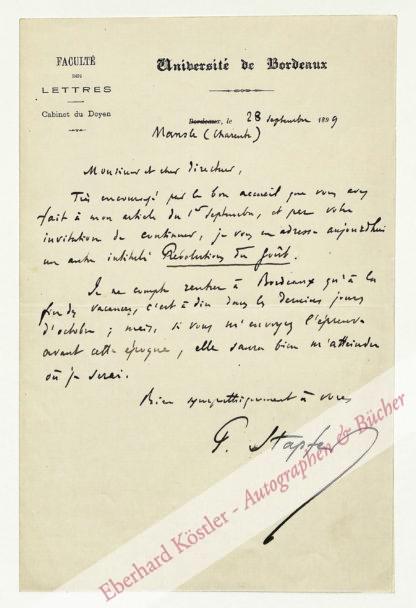 FACULTÉ
DES
LETTRES
Cabinet du Doyen
Université de Bordeaux
Bordeaux, le 28 septembre 1899
Mansle (Charente)
Monsieur et cher Directeur,
Très encouragé par le bon accueil que vous avez
fait à mon article du 1er septembre, et par votre
invitation de continuer, je vous en adresse aujourd'hui
un autre intitulé Révolutions du Goût.
Je ne compte rentrer à Bordeaux qu'à la
fin des vacances, c'est à dire dans les derniers jours
d'octobre ; mais, si vous m'envoyez l'épreuve
avant cette époque, elle saura bien m'atteindre
où je serai.
Bien sympathiquement à vous
P. Stapfer
Eberhard Köstler - Autographen & Bücher